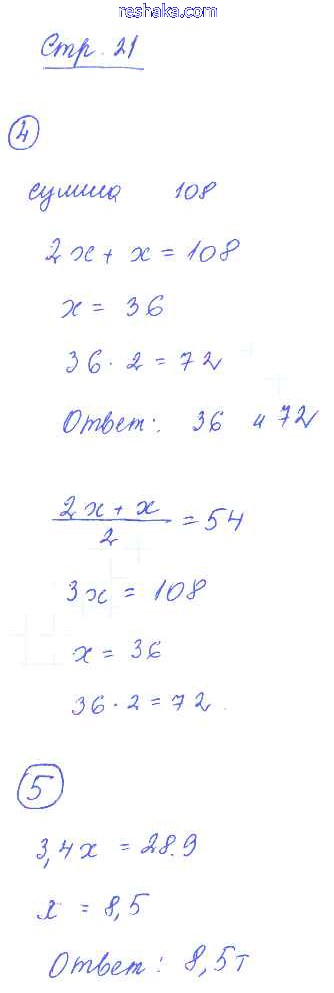 reshaka.com
Стр. 21
4
сумма 108
2x + x = 108
x = 36
36 · 2 = 72
Ответ: 36 и 72
(2x + x)/2 = 54
3x = 108
x = 36
36 · 2 = 72.
5
3,4x = 28.9
x = 8,5
Ответ: 8,5т